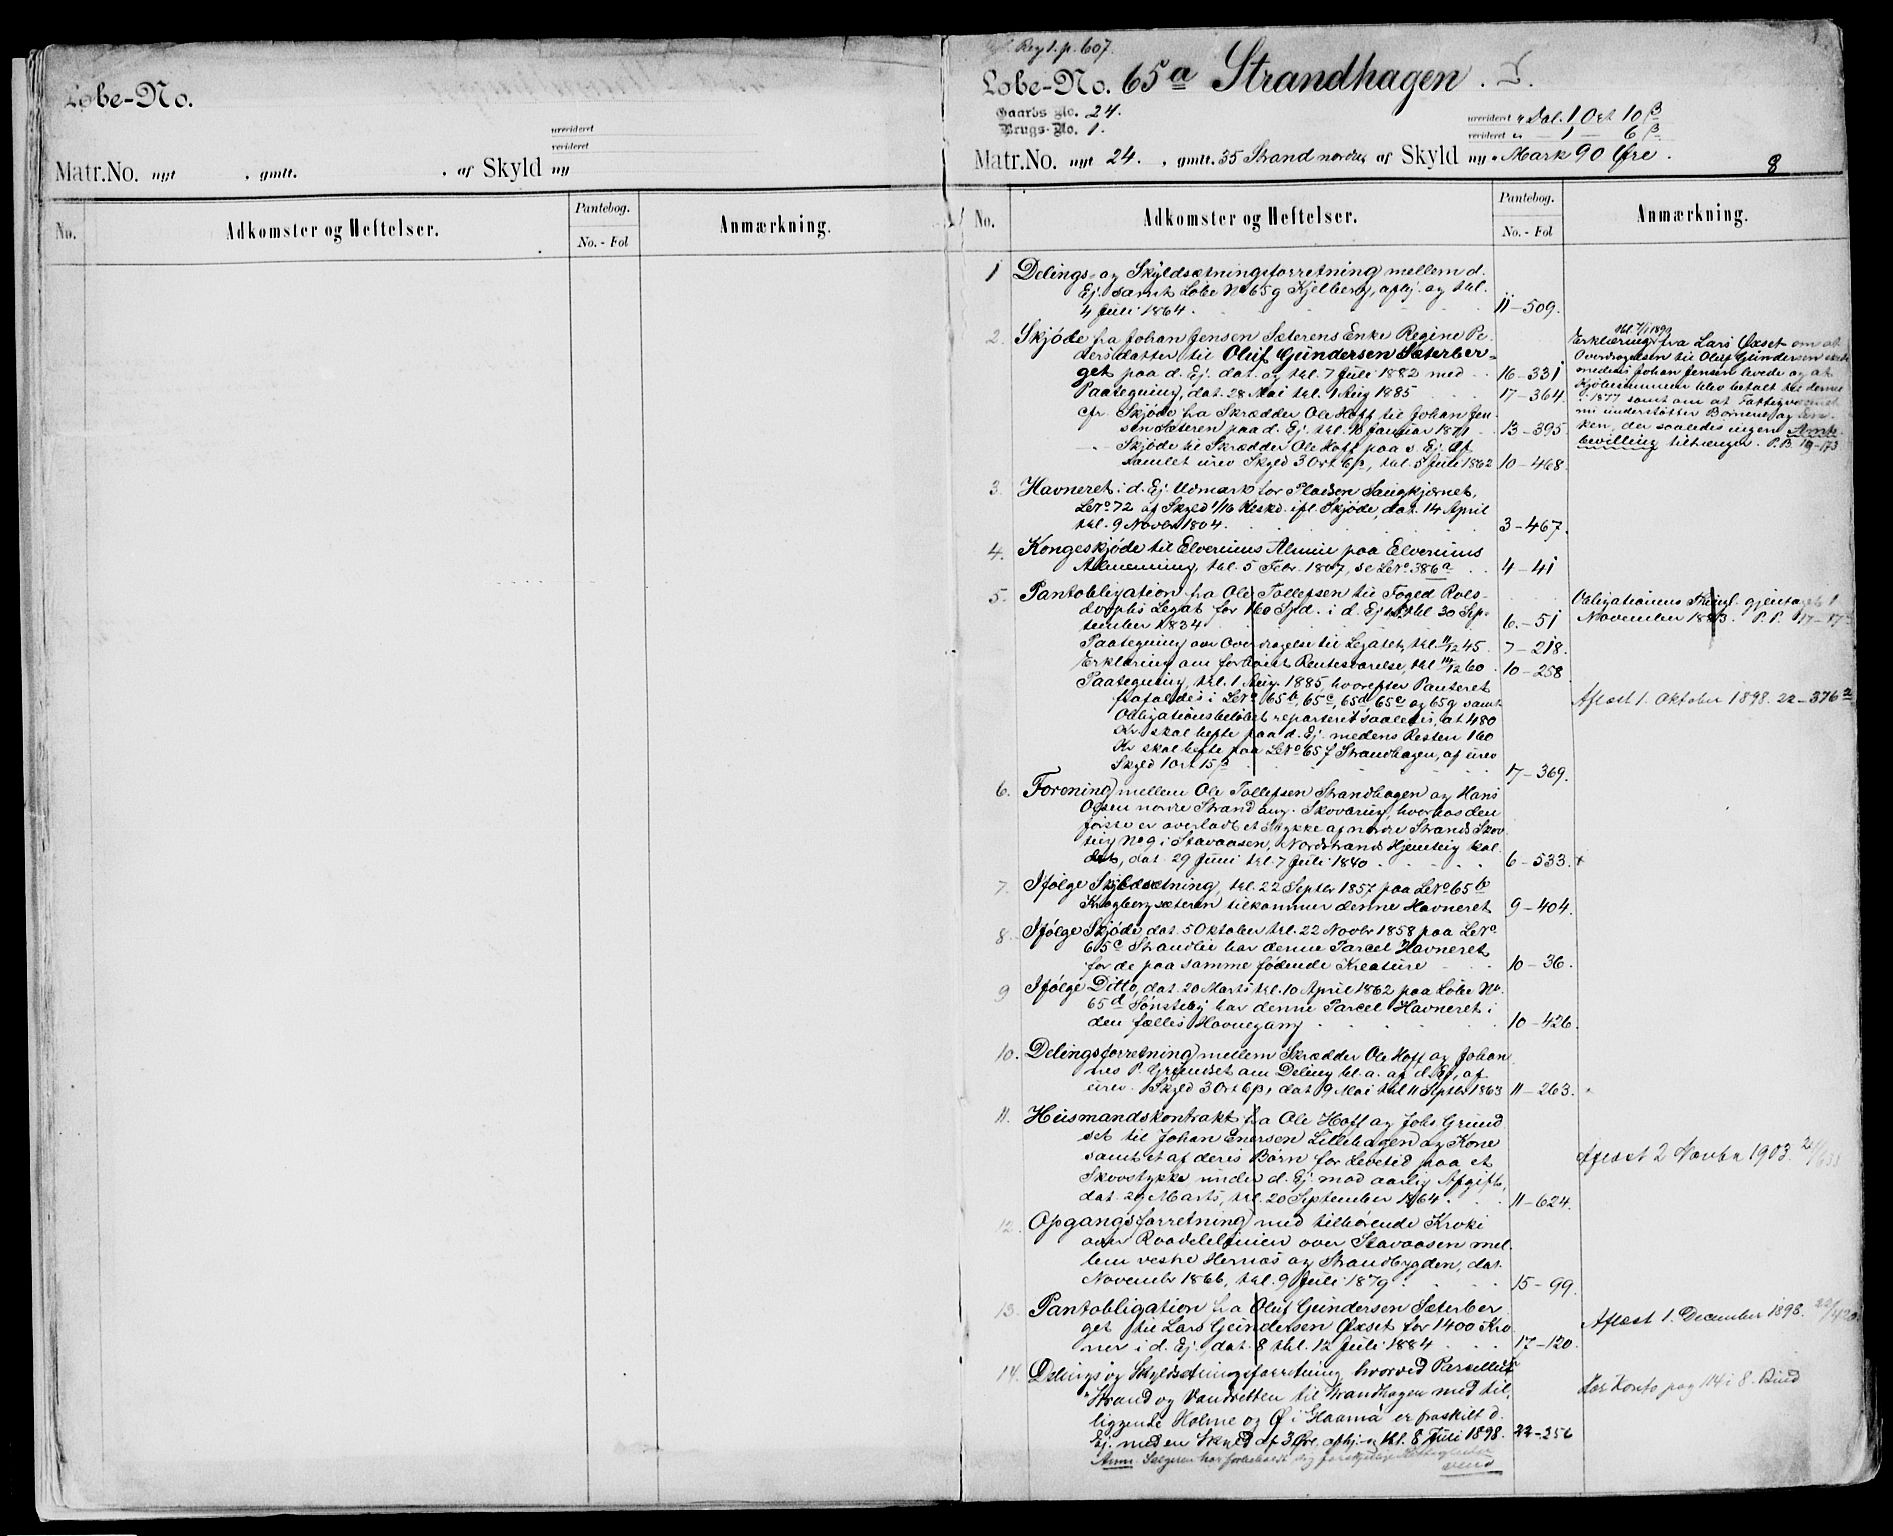 Løbe-No.
urevideret
revideret
Matr.No. nyt . gmlt. . af Skyld ny
No.
Adkomster og Heftelser.
Pantebog.
No. - Fol
Anmærkning.
Reg 1. p. 607.
Løbe-No. 65a Strandhagen.
Gaards No. 24.
Brugs-No. 1.
urevideret " Dal. 1 Ort 10 β
revideret " — 1 — 6 β
Matr.No. nyt 24. . gmlt. 35 Strand nordre af Skyld ny " Mark 90 Øre.
8
No.
Adkomster og Heftelser.
Pantebog.
No. - Fol
Anmærkning.
1 Delings- og Skyldsætningsforretning mellem d.
Ej. samt Løbe No 65g Kjelberg, afhj. og thl.
4 Juli 1864. 11-509.
2. Skjøde fra Johan Jensen Sæterens Enke Regine Pe-
dersdatter til Oluf Gundersen Sæterber-
get paa d. Ej. dat. og thl. 7 Juli 1882 med 16-331
Paategning, dat. 28 Mai thl. 1 Aug 1885 17-364
cfr. Skjøde fra Skrædder Ole Hoff til Johan Jen-
sen Sæteren paa d. Ej. thl. 10 Januar 1871 13-395
— Skjøde til Skrædder Ole Hoff paa d. Ej. af
samlet urev Skyld 3 Ort 6β, thl. 5 Juli 1862 10-468.
thl 7/1 1893
Erklæring fra Lars Øxset om at
Overdragelsen til Oluf Gundersen skede
medens Johan Jensen levede og at
Kjøbesummen blev betalt til denne
i 1877 samt om at Fattigvæsenet
nu understøtter Børnene og En-
ken, der saaledes ingen Amts-
bevilling tiltrænger. P.B. 19-173
3. Havneret i d. Ej. Udmark for Pladsen Saugkjærnet,
LNo 72 af Skyld 1/16 Hesk. ifl. Skjøde, dat. 14 April
thl. 9 Novbr 1804. 3-467.
4. Kongeskjøde til Elverums Almue paa Elverums
Almenning, thl. 5 Febr. 1807, se LNo 386a 4-41
5. Pantobligation fra Ole Tollefsen til Foged Rols-
dorphs Legat for 160 Spd. i d. Ej. thl 30 Sep-
tember 1834 6-51
Paategning om Overdragelse til Legatet, thl. 11/12 45. 7-218.
Erklæring om forhøiet Rentesvarelse, thl 14/12 60 10-258
Paategning, thl. 1 Aug. 1885, hvorefter Panteret
frafaldes i LNo 65b, 65c, 65d, 65e og 65g samt
Obligationsbeløbet reparteret saaledes, at 480
Kr. skal hefte paa d. Ej. medens Resten 160
Kr skal hefte paa LNo 65f Strandhagen, af urev
Skyld 1 ort 15β 17-369.
Obligationens Thingl. gjentaget 1
November 1883. P. P. 17-17
Aflæst 1. Oktober 1898. 22-376a
6. Forening mellem Ole Tollefsen Strandhagen og Hans
Olsen nordre Strand ang. Skovteig, hvorhos den
første er overladt et Stykke af nordre Strands Skov-
teig No 9 i Stavaasen, Nordstrands Hjemteig kal-
det, dat. 29 Juni thl. 7 Juli 1840 6-533.
7. Ifølge Skyldsætning, thl. 22 Septbr 1857 paa LNo 65b
Krogbergsæteren tilkommer denne Havneret 9-404.
8. Ifølge Skjøde dat. 5 Oktober thl. 22 Novbr 1858 paa LNo
65c Strandlie har denne Parcel Havneret
for de paa samme fødende Kreature 10-36.
9 Ifølge Ditto, dat. 20 Marts thl. 10 April 1862 paa Løbe No
65d Sønsteby har denne Parcel Havneret i
den fælles Havnegang 10-426.
10. Delingsforretning mellem Skrædder Ole Hoff og Johan-
nes P. Grundset om Deling bl. a. af d. Ej, af
urev. Skyld 3 Ort 6β, dat 9 Mai thl 11 Septbr 1863 11-263.
11. Husmandskontrakt fra Ole Hoff og Johs Grund-
set til Johan Enersen Lillehagen og Kone
samt et af deres Børn for Levetid paa et
Skovstykke under d. Ej. mod aarlig Afgift,
dat. 29 Marts, thl. 20 September 1864. 11-624.
Aflæst 2 Novbr 1903.
12. Opgangsforretning med tilhørende Kroki
over Roadelelinien over Stavaasen mel-
lem vestre Hernæs og Strandbygden, dat.
November 1866, thl. 9 Juli 1879 15-99.
13. Pantobligation fra Oluf Gundersen Sæterber-
get til Lars Gundersen Øxset for 1400 Kro-
ner i d. Ej., dat. 8 thl. 12 Juli 1884 17-120.
Aflæst 1. December 1898. 22/420
14. Delings og Skyldsætningsforretning hvorved Parcellen
Strand og Vandretten til Strandhagen med til-
liggende Holme og Ø i Glaama er fraskilt d.
Ej. med en Skyld af 3 Øre, afhj. og thl. 8 Juli 1898. 22-256
Har Konto pag 114 i 8. Bind
Anm. Sælgeren har forbeholdt sig forskjellige Rettigheder
vend